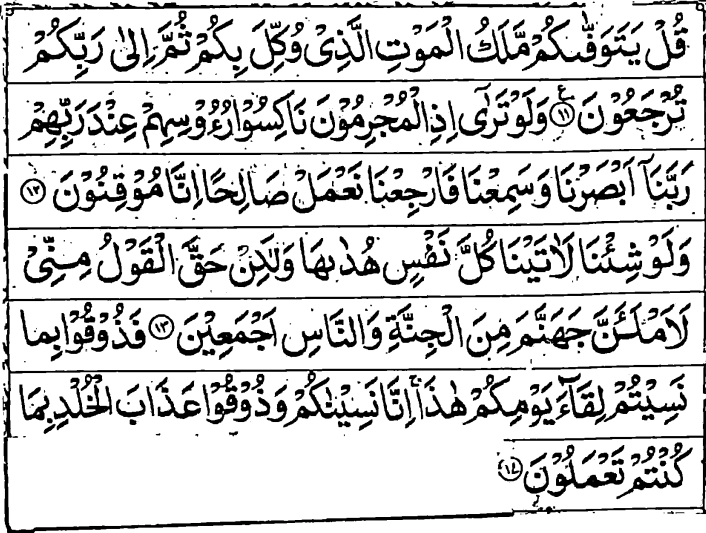 قُلْ يَتَوَفّٰىكُمْ مَّلَكُ الْمَوْتِ الَّذِیْ وُكِّلَ بِكُمْ ثُمَّ اِلٰی رَبِّكُمْ
تُرْجَعُوْنَ ۧ﴿۱۱﴾ وَلَوْ تَرٰۤی اِذِ الْمُجْرِمُوْنَ نَاكِسُوْا رُءُوْسِهِمْ عِنْدَ رَبِّهِمْ
رَبَّنَاۤ اَبْصَرْنَا وَسَمِعْنَا فَارْجِعْنَا نَعْمَلْ صَالِحًا اِنَّا مُوْقِنُوْنَ ﴿۱۲﴾
وَلَوْ شِئْنَا لَاٰتَيْنَا كُلَّ نَفْسٍ هُدٰىهَا وَلٰكِنْ حَقَّ الْقَوْلُ مِنِّیْ
لَاَمْلَـَٔنَّ جَهَنَّمَ مِنَ الْجِنَّةِ وَالنَّاسِ اَجْمَعِيْنَ ﴿۱۳﴾ فَذُوْقُوْا بِمَا
نَسِيْتُمْ لِقَآءَ يَوْمِكُمْ هٰذَا ۚ اِنَّا نَسِيْنٰكُمْ وَذُوْقُوْا عَذَابَ الْخُلْدِ بِمَا
كُنْتُمْ تَعْمَلُوْنَ ﴿۱۴﴾